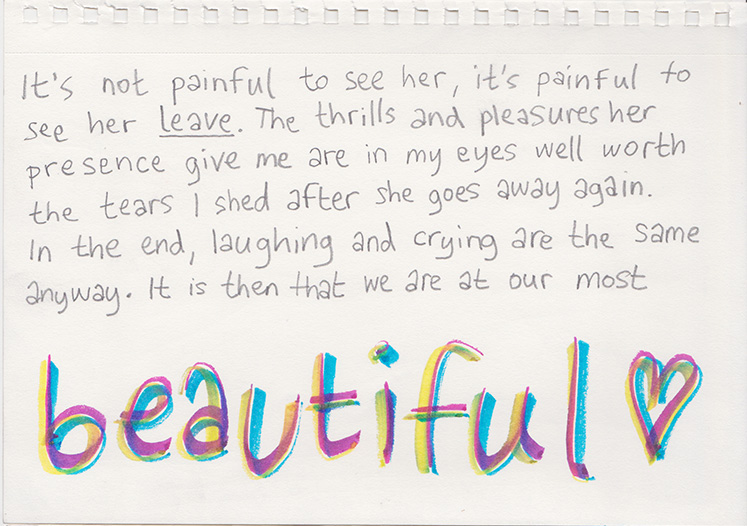 It's not painful to see her, it's painful to
see her leave. The thrills and pleasures her
presence give me are in my eyes well worth
the tears I shed after she goes away again.
In the end, laughing and crying are the same
anyway. It is then that we are at our most
beautiful ♡